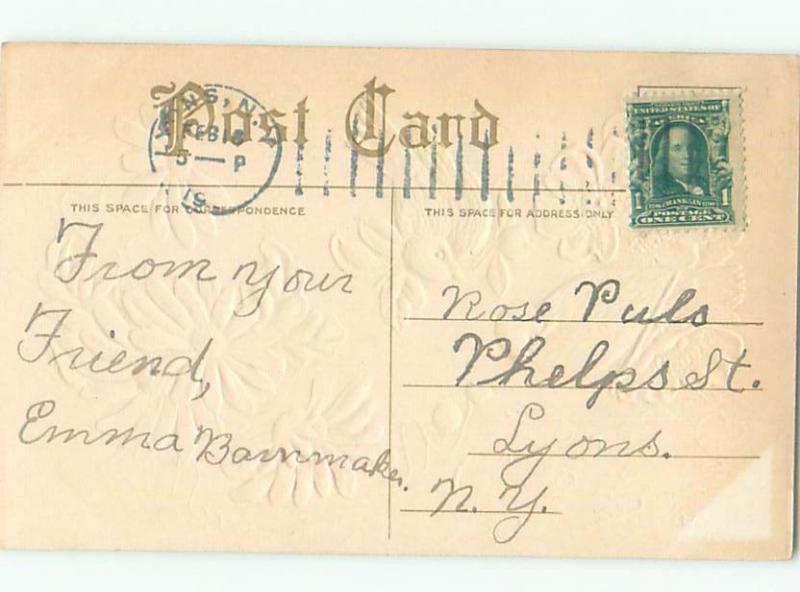 Post Card
FEB
5 — P
THIS SPACE FOR CORRESPONDENCE
THIS SPACE FOR ADDRESS ONLY
UNITED STATES OF
AMERICA
1 FRANKLIN 1
POSTAGE
ONE CENT
From your
Friend,
Emma
Rose Puls
Phelps St.
Lyons.
N. Y.